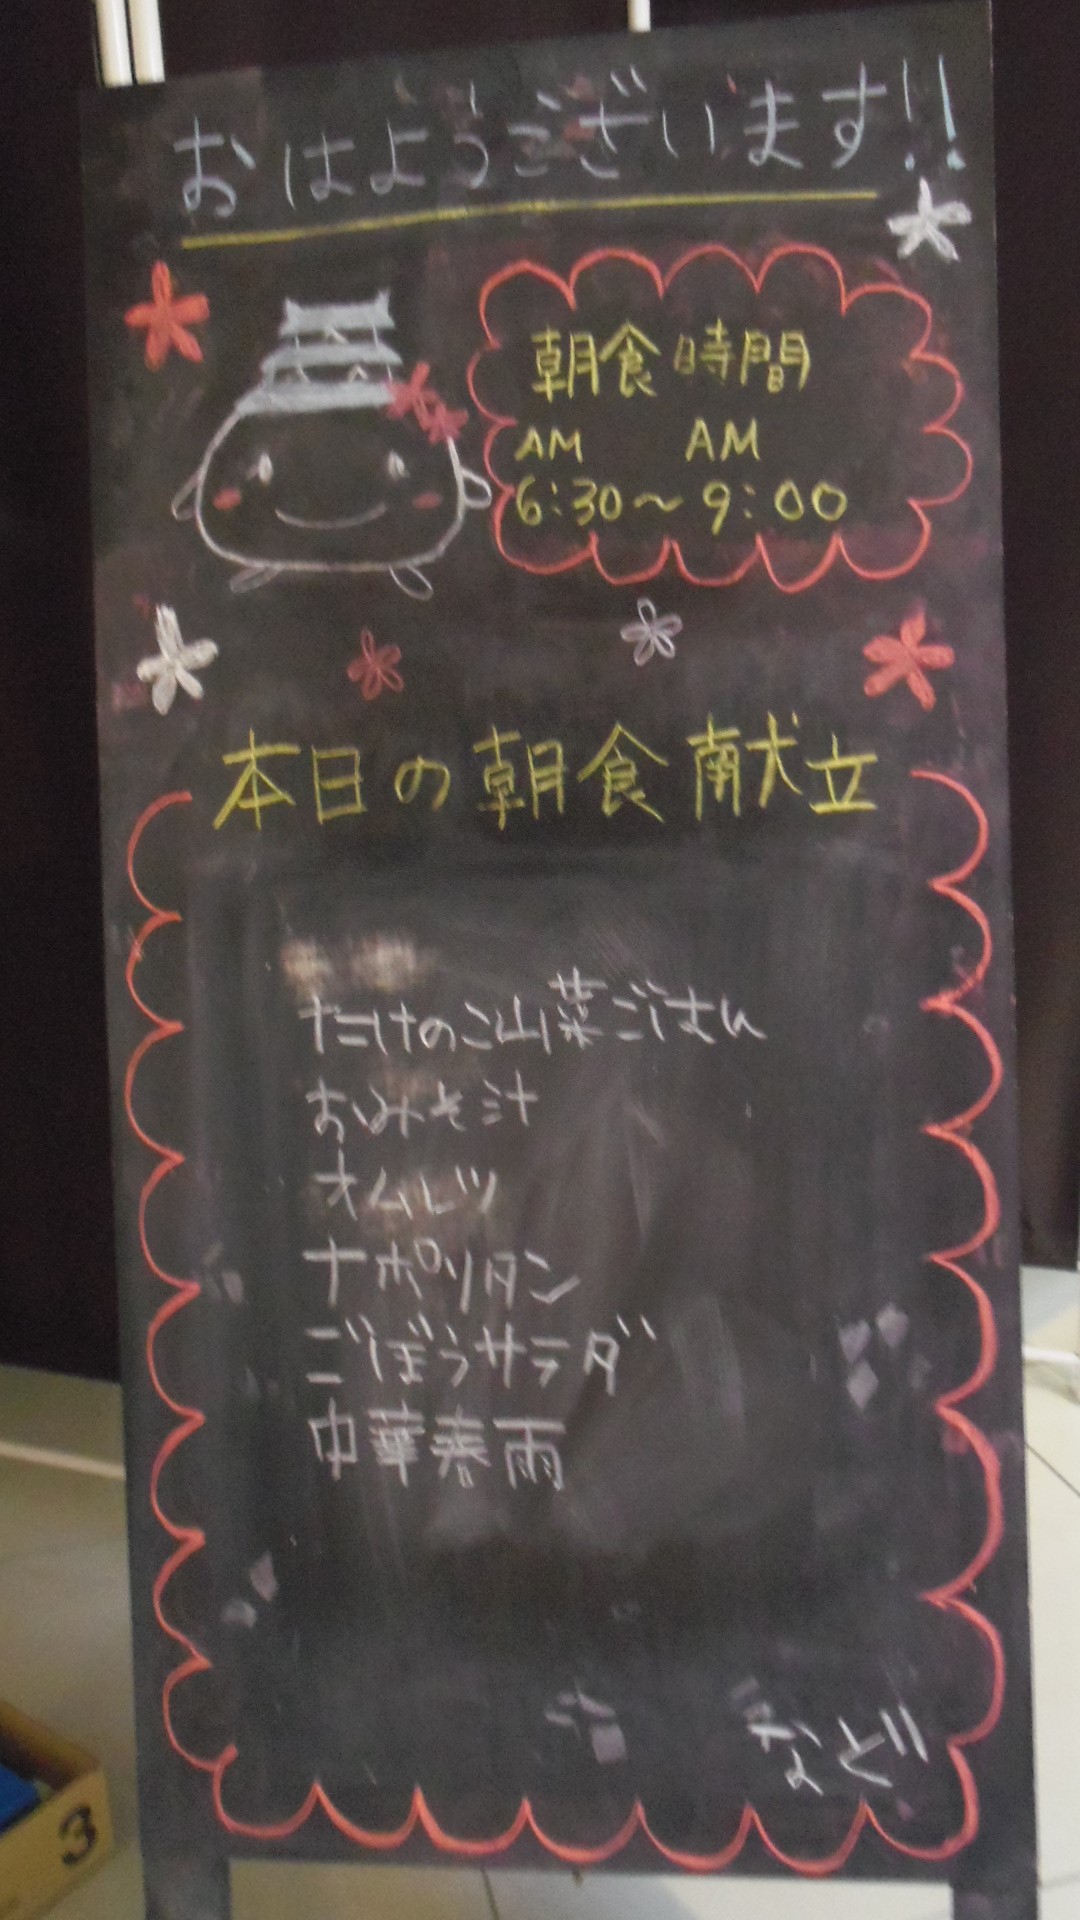 おはようございます!!
朝食時間
AM AM
6:30〜9:00
本日の朝食献立
たけのこ山菜ごはん
おみそ汁
オムレツ
ナポリタン
ごぼうサラダ
中華春雨
など
3